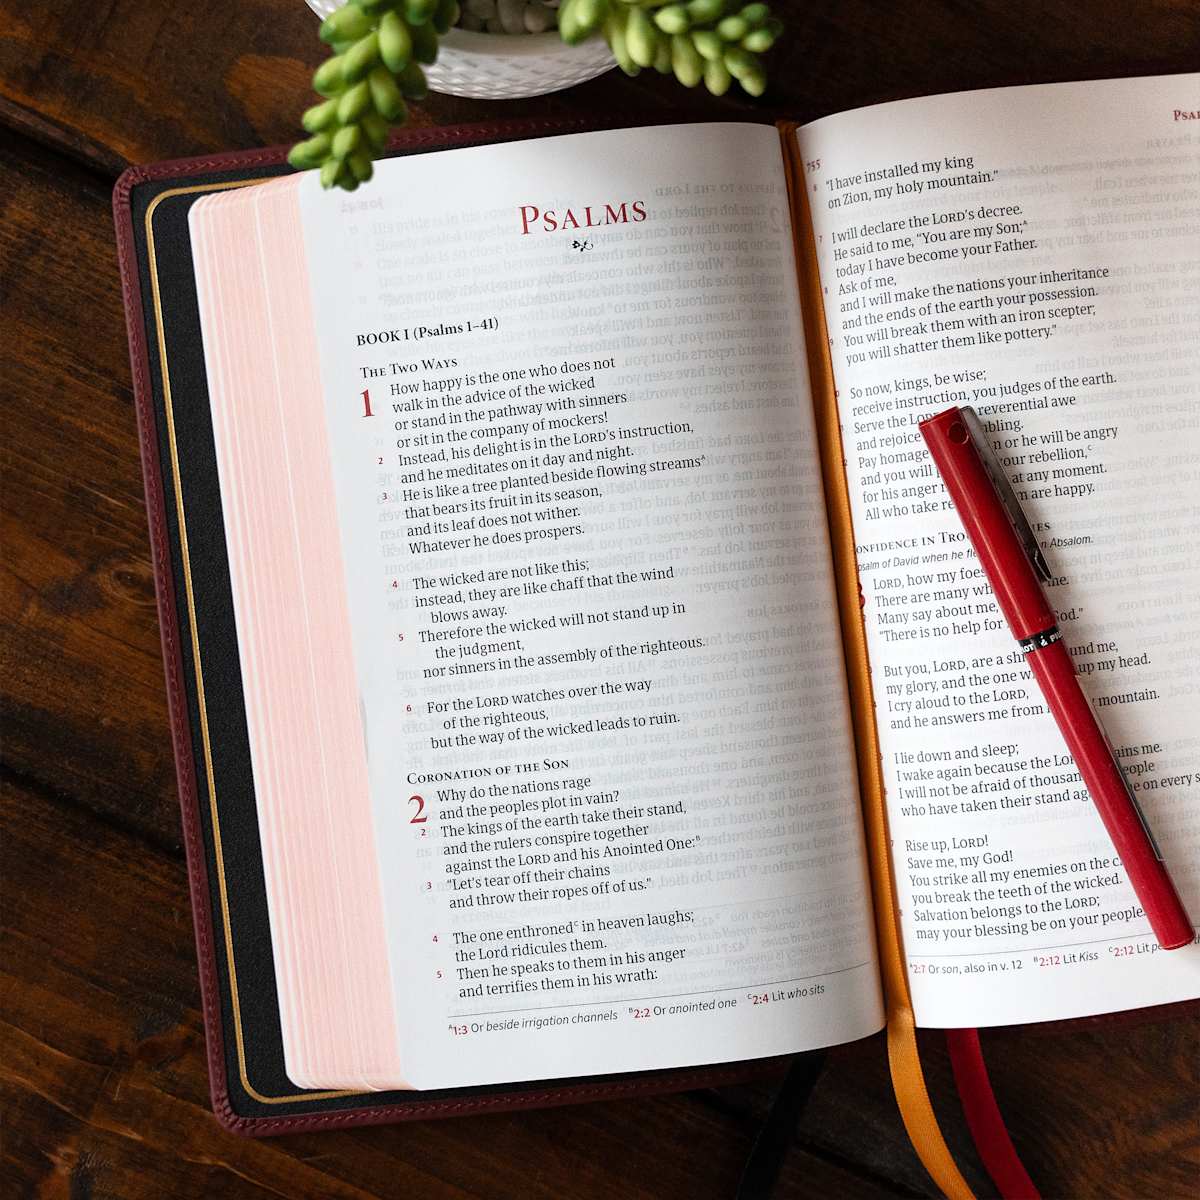 PSALMS
BOOK I (Psalms 1–41)
THE TWO WAYS
1 How happy is the one who does not
walk in the advice of the wicked
or stand in the pathway with sinners
or sit in the company of mockers!
2 Instead, his delight is in the LORD's instruction,
and he meditates on it day and night.
3 He is like a tree planted beside flowing streamsᴬ
that bears its fruit in its season,
and its leaf does not wither.
Whatever he does prospers.
4 The wicked are not like this;
instead, they are like chaff that the wind
blows away.
5 Therefore the wicked will not stand up in
the judgment,
nor sinners in the assembly of the righteous.
6 For the LORD watches over the way
of the righteous,
but the way of the wicked leads to ruin.
CORONATION OF THE SON
2 Why do the nations rage
and the peoples plot in vain?
2 The kings of the earth take their stand,
and the rulers conspire together
against the LORD and his Anointed One:ᴮ
3 "Let's tear off their chains
and throw their ropes off of us."
4 The one enthronedᶜ in heaven laughs;
the Lord ridicules them.
5 Then he speaks to them in his anger
and terrifies them in his wrath:
ᴬ1:3 Or beside irrigation channels ᴮ2:2 Or anointed one ᶜ2:4 Lit who sits
755
6 "I have installed my king
on Zion, my holy mountain."
7 I will declare the LORD's decree.
He said to me, "You are my Son;ᴬ
today I have become your Father.
8 Ask of me,
and I will make the nations your inheritance
and the ends of the earth your possession.
9 You will break them with an iron scepter;
you will shatter them like pottery."
So now, kings, be wise;
receive instruction, you judges of the earth.
Serve the reverential awe
and rejoice
Pay homage or he will be angry
and you will your rebellion,ᶜ
for his anger at any moment.
All who take are happy.
IN
psalm of David when he Absalom.
LORD, how my foes me.
There are many
Many say about me,
"There is no help for God."
But you, LORD, are a
my glory, and the one up my head.
I cry aloud to the LORD,
and he answers me from mountain.
I lie down and sleep;
I wake again because the
I will not be afraid of people
who have taken their stand on every
7 Rise up, LORD!
Save me, my God!
You strike all my enemies on the
you break the teeth of the wicked.
8 Salvation belongs to the LORD;
may your blessing be on your people
ᴬ2:7 Or son, also in v. 12 ᴮ2:12 Lit Kiss ᶜ2:12 Lit